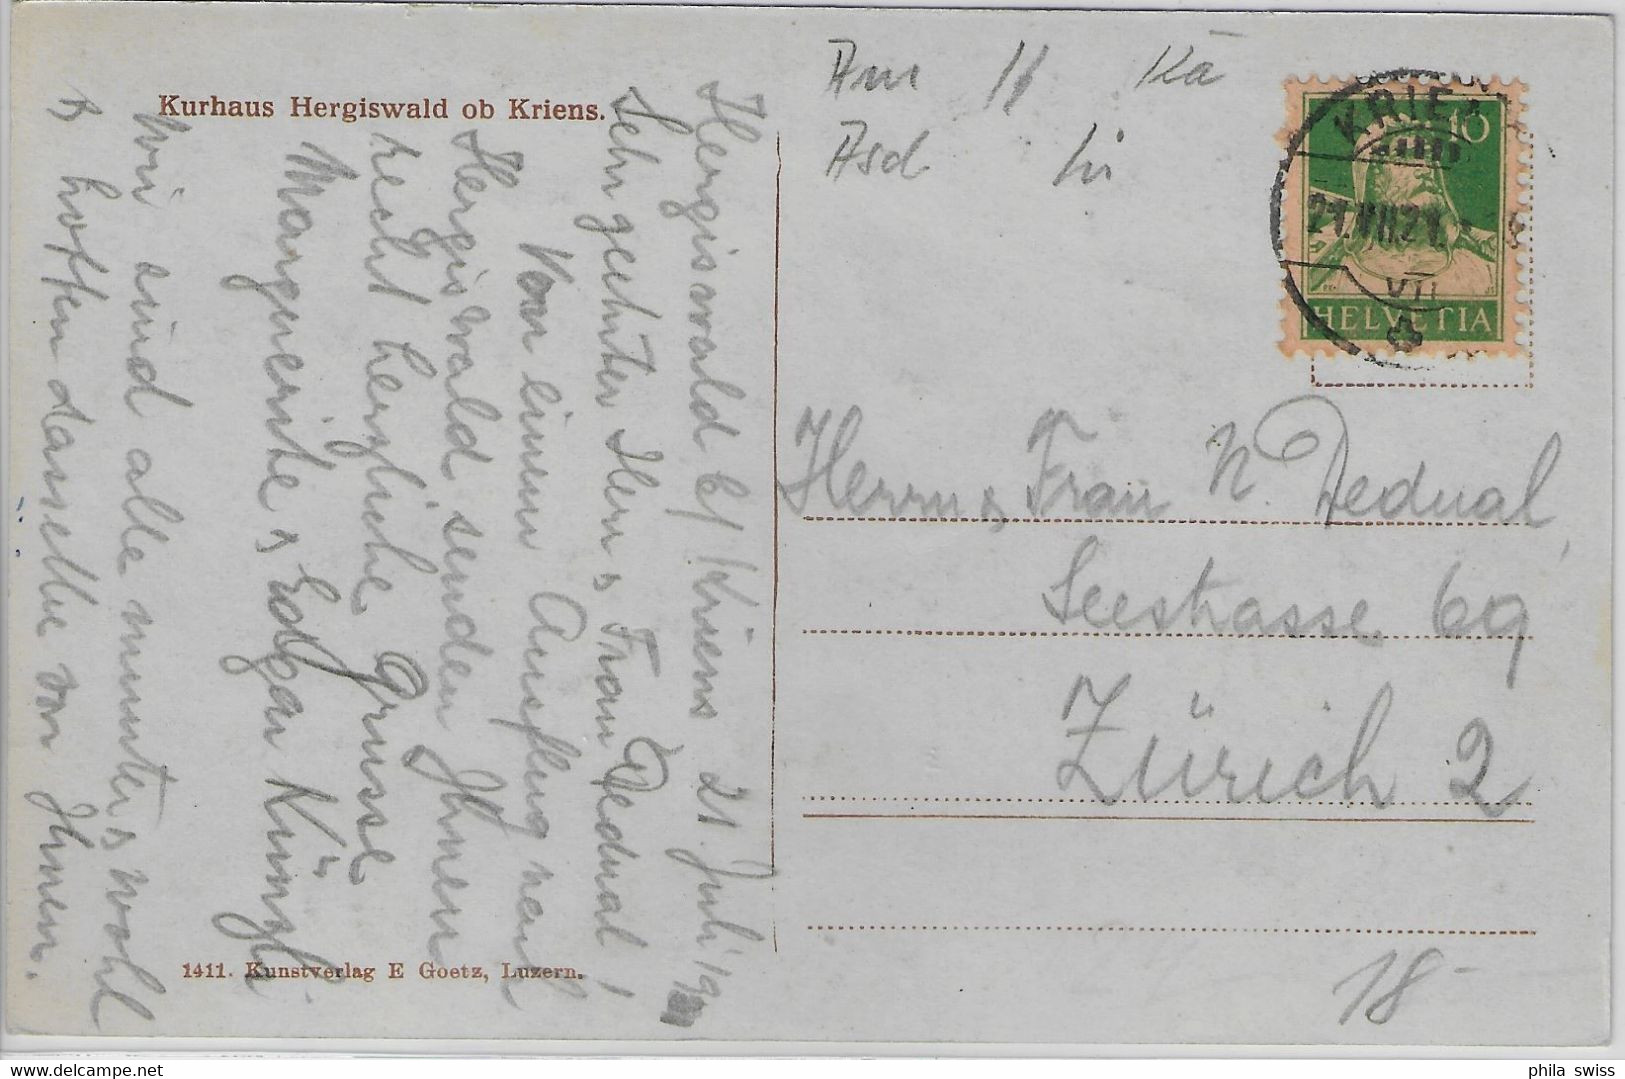 Kurhaus Hergiswald ob Kriens.
Hergiswald b/Kriens 21. Juli 19
Sehr geehrter Herr & Frau Dedual!
Von einem Ausflug nach
Hergiswald, senden Ihnen
recht herzliche Grüsse
Marguerite & Edgar Künzli
Wir sind alle munter & wohl
& hoffen dasselbe von Ihnen.
1411. Kunstverlag E Goetz, Luzern.
Am 11 Kä
Asd
KRIEN
21.VII.21.
VII
10
HELVETIA
Herrn & Frau N. Dedual,
Seestrasse 69
Zürich 2
18-
phila swiss